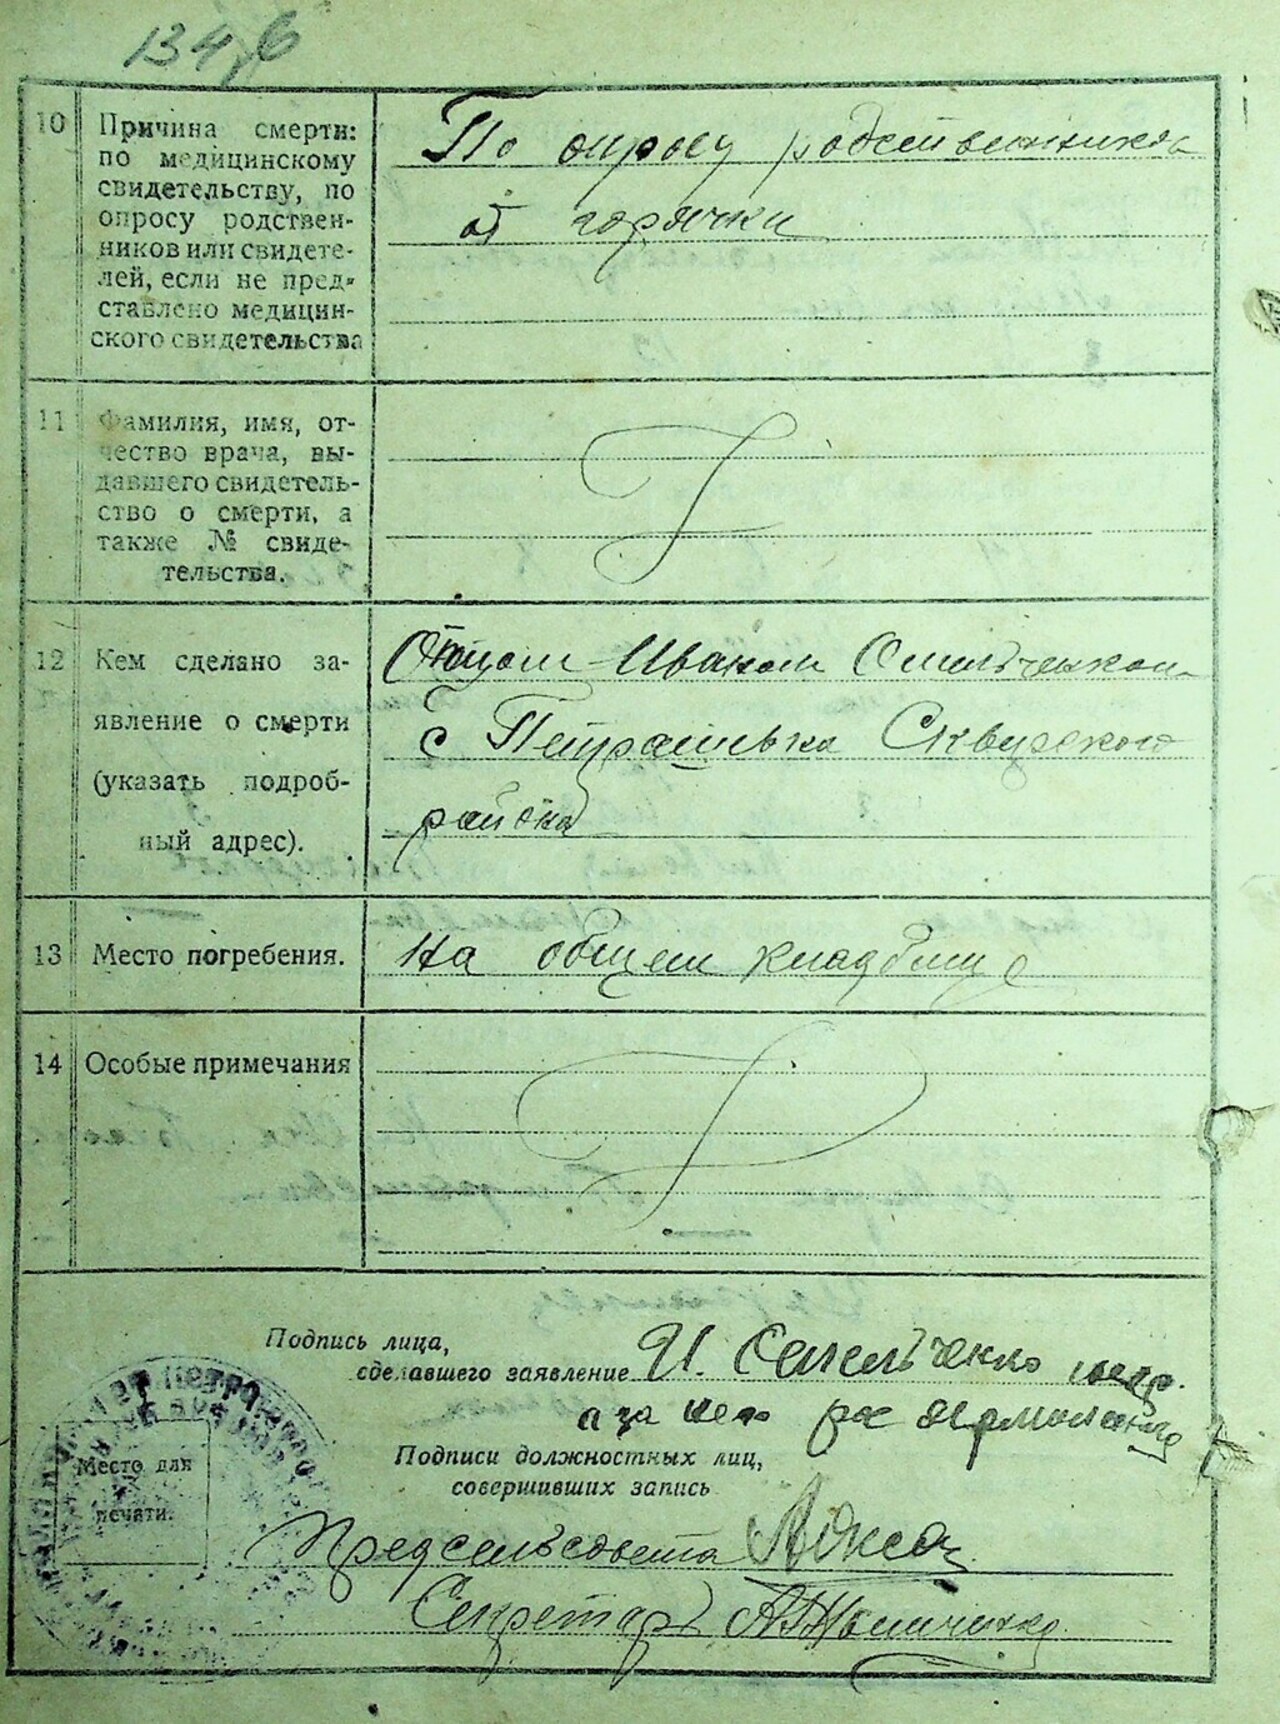 134
10 Причина смерти:
по медицинскому
свидетельству, по
опросу родствен-
ников или свидете-
лей, если не пред-
ставлено медицин-
ского свидетельства
По опросу родственников
от горячки
11 Фамилия, имя, от-
чество врача, вы-
давшего свидетель-
ство о смерти, а
также № свиде-
тельства.
12 Кем сделано за-
явление о смерти
(указать подроб-
ный адрес).
Отцом Иваном
с Петрашівка Сквирского
района
13 Место погребения.
На общем кладбище
14 Особые примечания
Подпись лица,
сделавшего заявление И.
а за него
Подписи должностных лиц,
совершивших запись
Место для
печати.
Предсельсовета
Секретарь